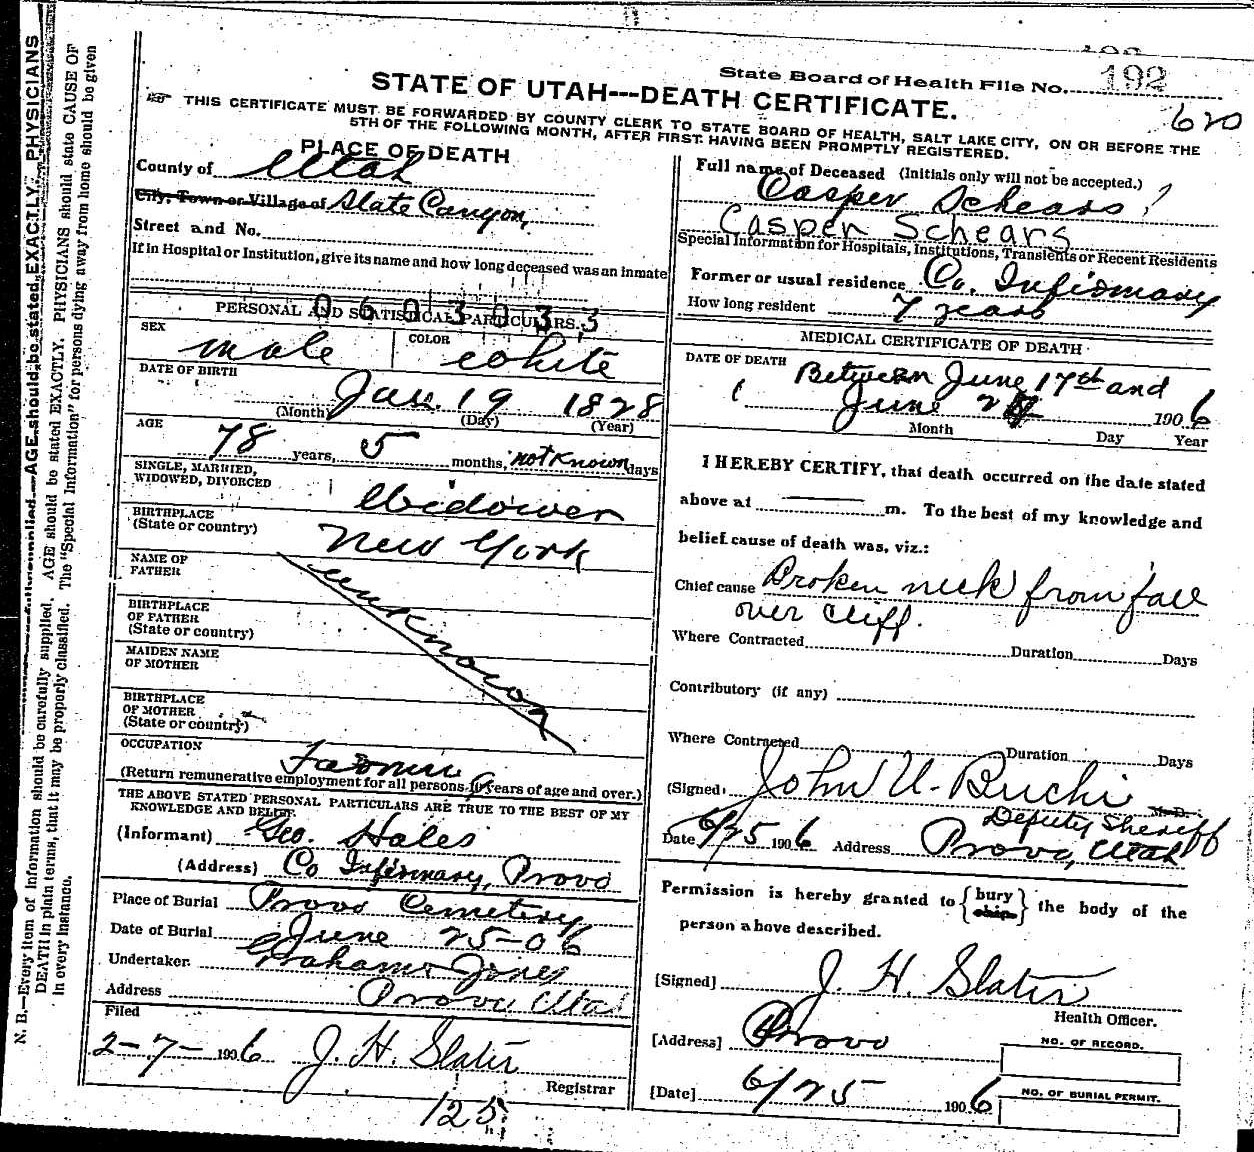 State Board of Health File No. 192
620
STATE OF UTAH---DEATH CERTIFICATE.
THIS CERTIFICATE MUST BE FORWARDED BY COUNTY CLERK TO STATE BOARD OF HEALTH, SALT LAKE CITY, ON OR BEFORE THE
5TH OF THE FOLLOWING MONTH, AFTER FIRST HAVING BEEN PROMPTLY REGISTERED.
PLACE OF DEATH
County of Utah
City, Town or Village of Slate Canyon,
Street and No.
If in Hospital or Institution, give its name and how long deceased was an inmate
0603033
PERSONAL AND STATISTICAL PARTICULARS.
SEX male COLOR white
DATE OF BIRTH
Jan. 19 1828
(Month) (Day) (Year)
AGE 78 years, 5 months, not known days
SINGLE, MARRIED,
WIDOWED, DIVORCED Widower
BIRTHPLACE
(State or country) New York
NAME OF
FATHER
unknown
BIRTHPLACE
OF FATHER
(State or country)
MAIDEN NAME
OF MOTHER
BIRTHPLACE
OF MOTHER
(State or country)
OCCUPATION
Farmer
(Return remunerative employment for all persons 10 years of age and over.)
THE ABOVE STATED PERSONAL PARTICULARS ARE TRUE TO THE BEST OF MY
KNOWLEDGE AND BELIEF.
(Informant) Geo. Hales
(Address) Co Infirmary, Provo
Place of Burial Provo Cemetery
Date of Burial June 25-06
Undertaker Graham & Jones
Address Provo Utah
Filed
2-7- 1906 J. H. Slater
Registrar
125
Full name of Deceased (Initials only will not be accepted.)
Casper Schears?
Casper Schears
Special Information for Hospitals, Institutions, Transients or Recent Residents
Former or usual residence Co. Infirmary
How long resident 7 years
MEDICAL CERTIFICATE OF DEATH
DATE OF DEATH Between June 17th and
June 24 1906
Month Day Year
I HEREBY CERTIFY, that death occurred on the date stated
above at m. To the best of my knowledge and
belief cause of death was, viz.:
Chief cause Broken neck from fall
over cliff.
Where Contracted Duration Days
Contributory (if any)
Where Contracted Duration Days
(Signed) John U. Buchi M.D.
Deputy Sheriff
Date 6/25 1906 Address Provo, Utah
Permission is hereby granted to {bury ship} the body of the
person above described.
[Signed] J. H. Slater
Health Officer.
[Address] Provo
NO. OF RECORD.
[Date] 6/25 1906
NO. OF BURIAL PERMIT.
N. B.—Every item of information should be carefully supplied. AGE should be stated EXACTLY. PHYSICIANS should state CAUSE OF
DEATH in plain terms, that it may be properly classified. The "Special Information" for persons dying away from home should be given
in every instance.
AGE should be stated EXACTLY. PHYSICIANS